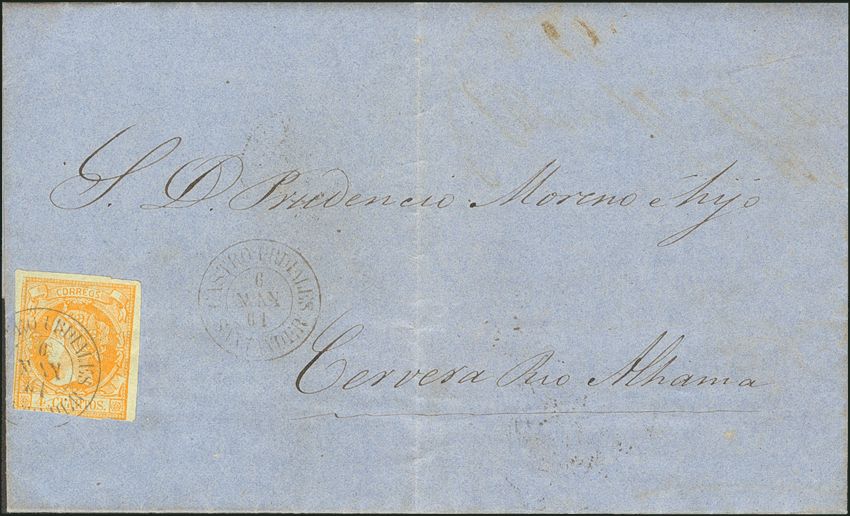 S. D. Prudencio Moreno é hijo
CASTRO-URDIALES
6
MAY
61
SANTANDER
CORREOS
4 CUARTOS.
6
MAY
61
Cervera Rio Alhama